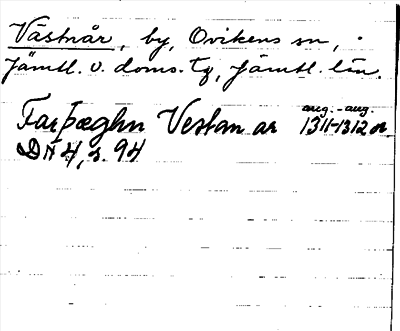 Västnår, by, Ovikens sn,
Jämtl. v. doms. tg, Jämtl. län.
Farþæghn Vestan ar aug.-aug. 1311-1312 or
DN 4, s. 94